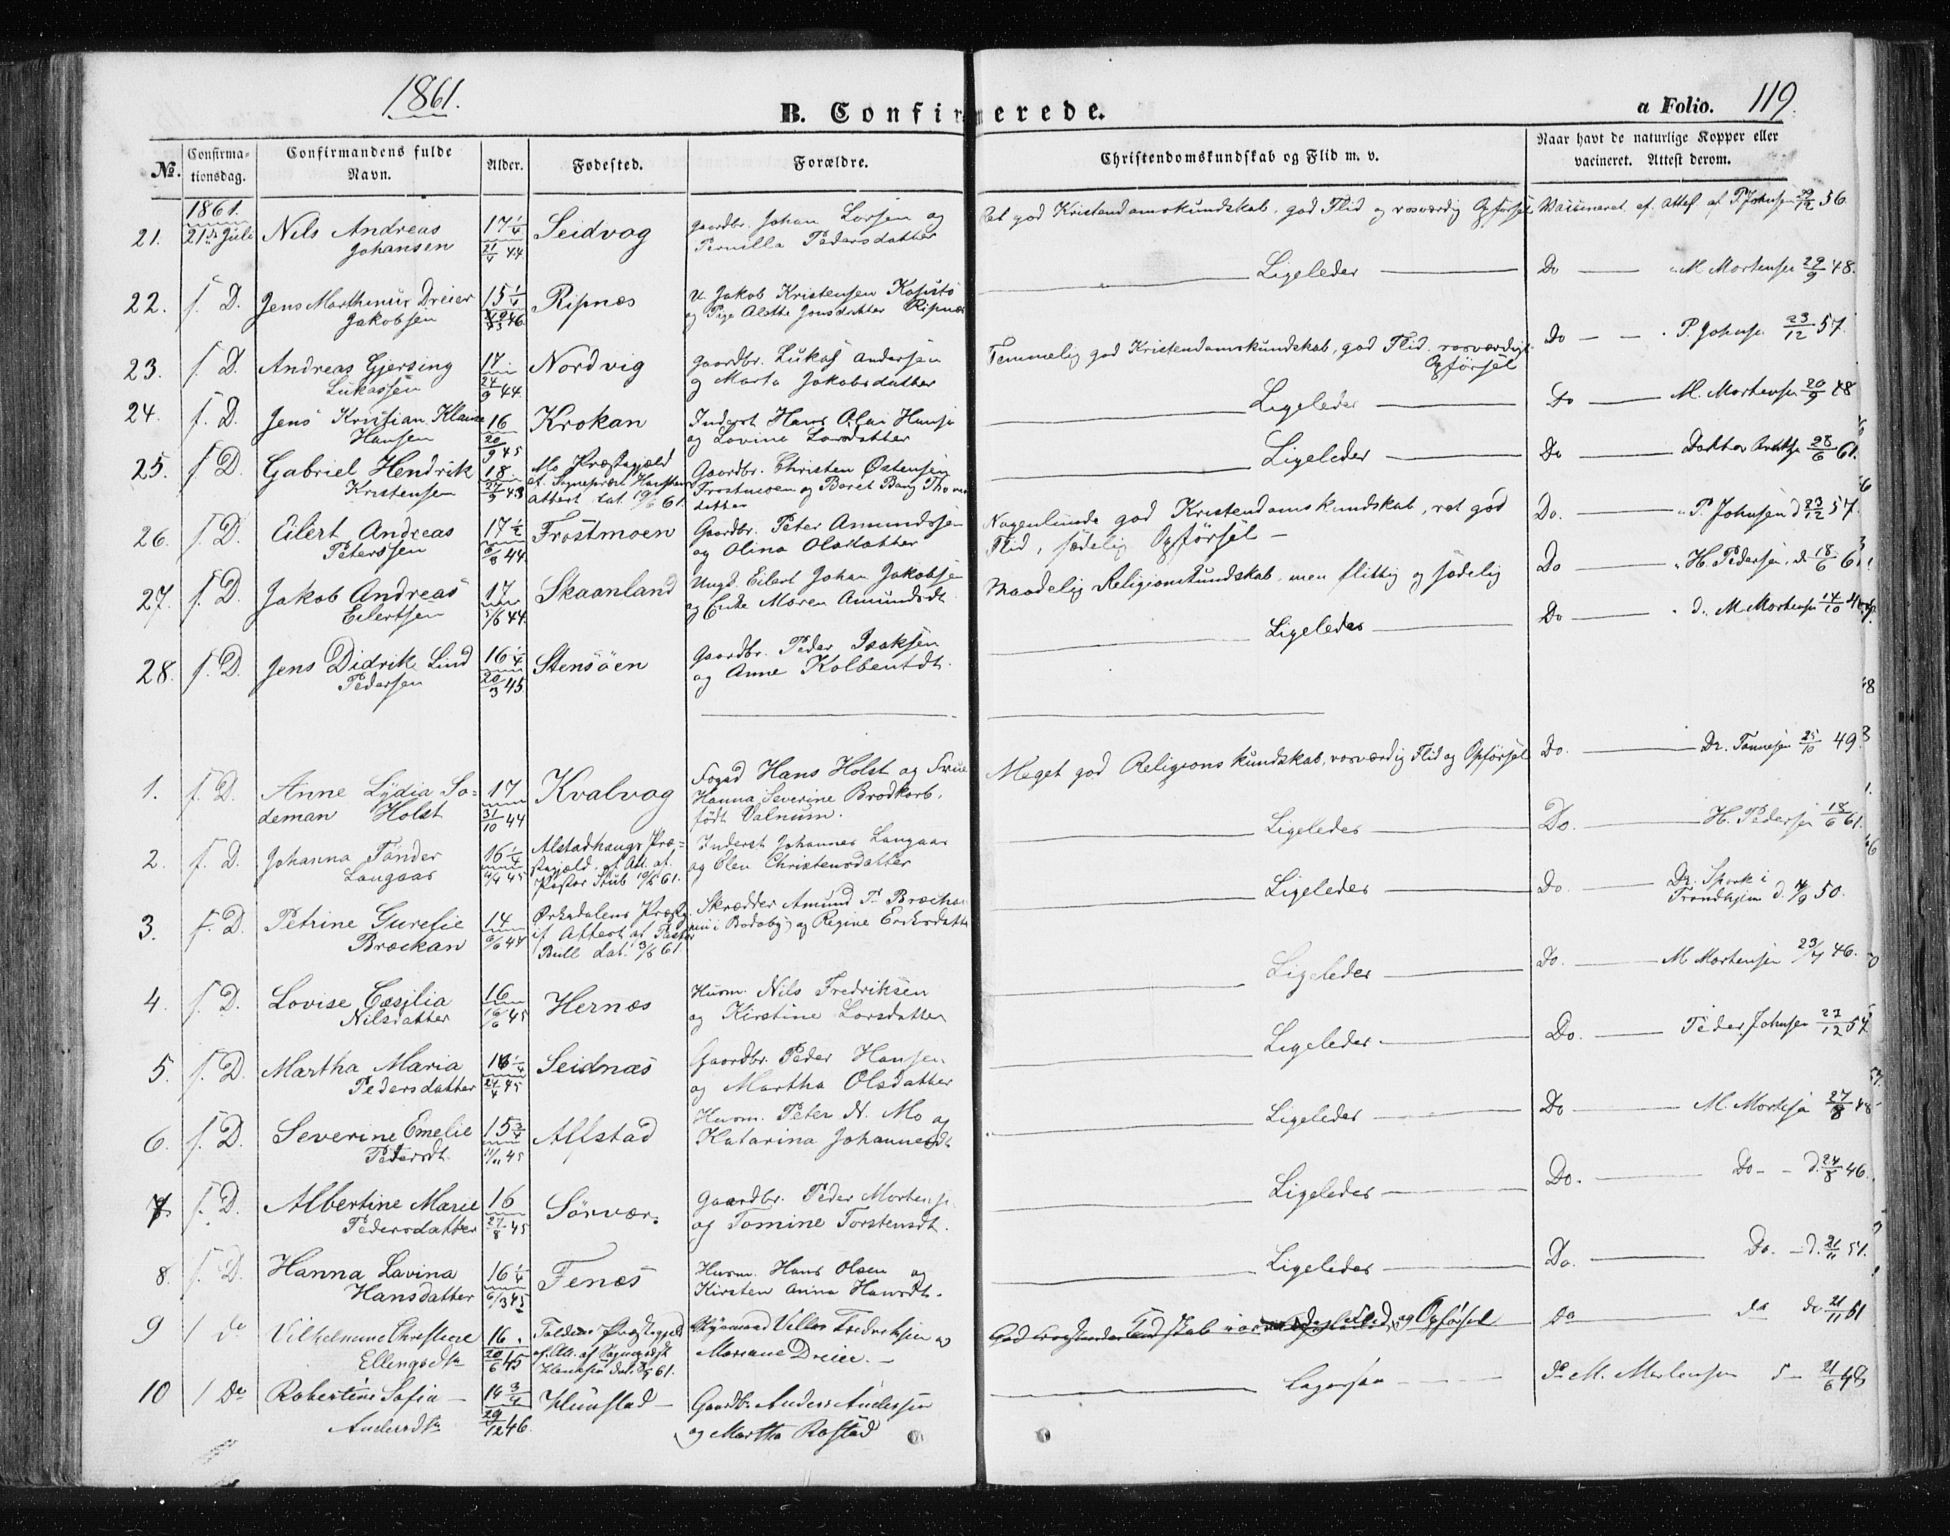 1861.
B. Confirmerede.
a Folio. 119.
No. Confirmationsdag. Confirmandens fulde Navn. Alder. Fødested. Forældre. Christendomskundskab og Flid m. v. Naar havt de naturlige Kopper eller vacineret. Attest derom.
1861.
21. 21de Juli Nils Andreas Johansen 17 1/4 21/4 44 Seidvog Gaardbr. Johan Larsen og Pernilla Pedersdatter Ret god Kristendomskundskab, god Flid og rosværdig Opførsel Vaccineret ef. Attest af P. Johnsen 22/12 56.
22. f. D. Jens Marthinus Dreier Jakobsen 15 1/4 46. Ripnæs U. Jakob Kristensen og Pige Alethe Jonsdatter Ripnæs Ligeledes Do M Mortensen 29/9 48.
23. f. D. Andreas Gjersing Lukassen 17 24/9 44. Nordvig Gaardbr. Lukas Andersen og Marta Jakobsdatter Temmelig god Kristendomskundskab, god Flid rosværdig Opførsel Do P. Johnsen 23/12 57.
24. f. D. Jens Kristian Klause Hansen 16 20/9 45 Krokan Inderst Hans Olai Hansen og Lovina Larsdatter Ligeledes Do M. Mortensen 20/9 48
25. f. D. Gabriel Hendrik Kristensen 18 27/5 43 Mo Præstegjæld ef. Sognepræst attest dat. 61. Gaardbr. Christen Østensen Frostmoen og Beret Bang datter Ligeledes Do Doktor 28/6 61.
26. f. D. Eilert Andreas Peterssen 17 1/2 44 Frostmoen Gaardbr. Peter Amundsen og Olina Olsdatter Nogenlunde god Kristendomskundskab, ret god Flid, sædelig Opførsel Do. P. Johnsen d 23/12 57.
27. f. D. Jakob Andreas Eilertsen 17 5/6 44. Skaanland Ungk. Eilert Johan Jakobsen og Enke Maren Amundsdt. Maadelig Religionskundskab, men flittig og sædelig Do H. Pedersen, d. 18/6 61.
28. f. D. Jens Didrik Lind Pedersen 16 1/4 20/3 45 Stensöen Gaardbr. Peder Isaksen og Anne Kolbentdt. Ligeledes Do d. M Mortensen 14/10
1. f. D. Anne Lydia Sodeman Holst 17 31/10 44 Kvalvog Fogad Hans Holst og Frue Hanna Severine Brodkorb, født Valnum. Meget god Religionskundskab, rosværdig Flid og Opførsel Do. Dr. Tønnesen 25/10 49.
2. f. D. Johanna Tønder Langaas 16 1/4 45 Alstadhaugs Præstegjæld, ef. Att. af Pastor Stub 61. Inderst Johannes Langaas og Elen Christensdatter Ligeledes Do. H. Pedersen 18/6 61.
3. f. D. Petrine Gurelie Brækan 14 6/6 47 Ørkedalens Præstg. ef Attest af Pastor Bull dat. 61. Skrædder Amund P. Brækan i Bodøby og Regine Eriksdatter Ligeledes Do Dr. Spork i Trondhjem d. 50.
4. f. D. Lovise Cæsilia Nilsdatter 16 16/6 45 Hernæs Husm. Nils Fredriksen og Kirstine Larsdatter Ligeledes Do. M Mortensen 23/4 46.
5. f. D. Martha Maria Pedersdatter 16 1/4 24/4 45 Seidnæs Gaardbr. Peder Hansen og Martha Olsdatter Ligeledes Do. Peder Johnsen 23/12 57.
6. f. D. Severine Emelie Pedersdt. 15 3/4 11/11 45 Alfstad Husm. Peter N. Mo og Katarina Johannesdt Ligeledes Do M. Mortensen 27/8 48
7. f. D. Albertine Marie Pedersdatter 16 27/8 45 Sörvær. Gaardbr. Peder Mortensen og Tomine Torstensdt. Ligeledes Do. Do d. 24/8 46.
8. f. D. Hanna Lavina Hansdatter 16 1/4 6/3 45 Fenæs Husm. Hans Olsen og Kirsten Anna Hansdt. Ligeledes Do. Do. d. 21/11 51.
9 f Do Vilhelmine Christiene Ellingsdtr 16. 20/6 45 61. Fredriksen og Mariane Dreier. God og Opførsel do do do 21/11 61
10 f Do Robertine Sofia Andersdtr 14 3/4 29/12 46. Hunstad Gaardbr. Anders Andersen og Martha Rostad do M. Mortensen 21/6 48